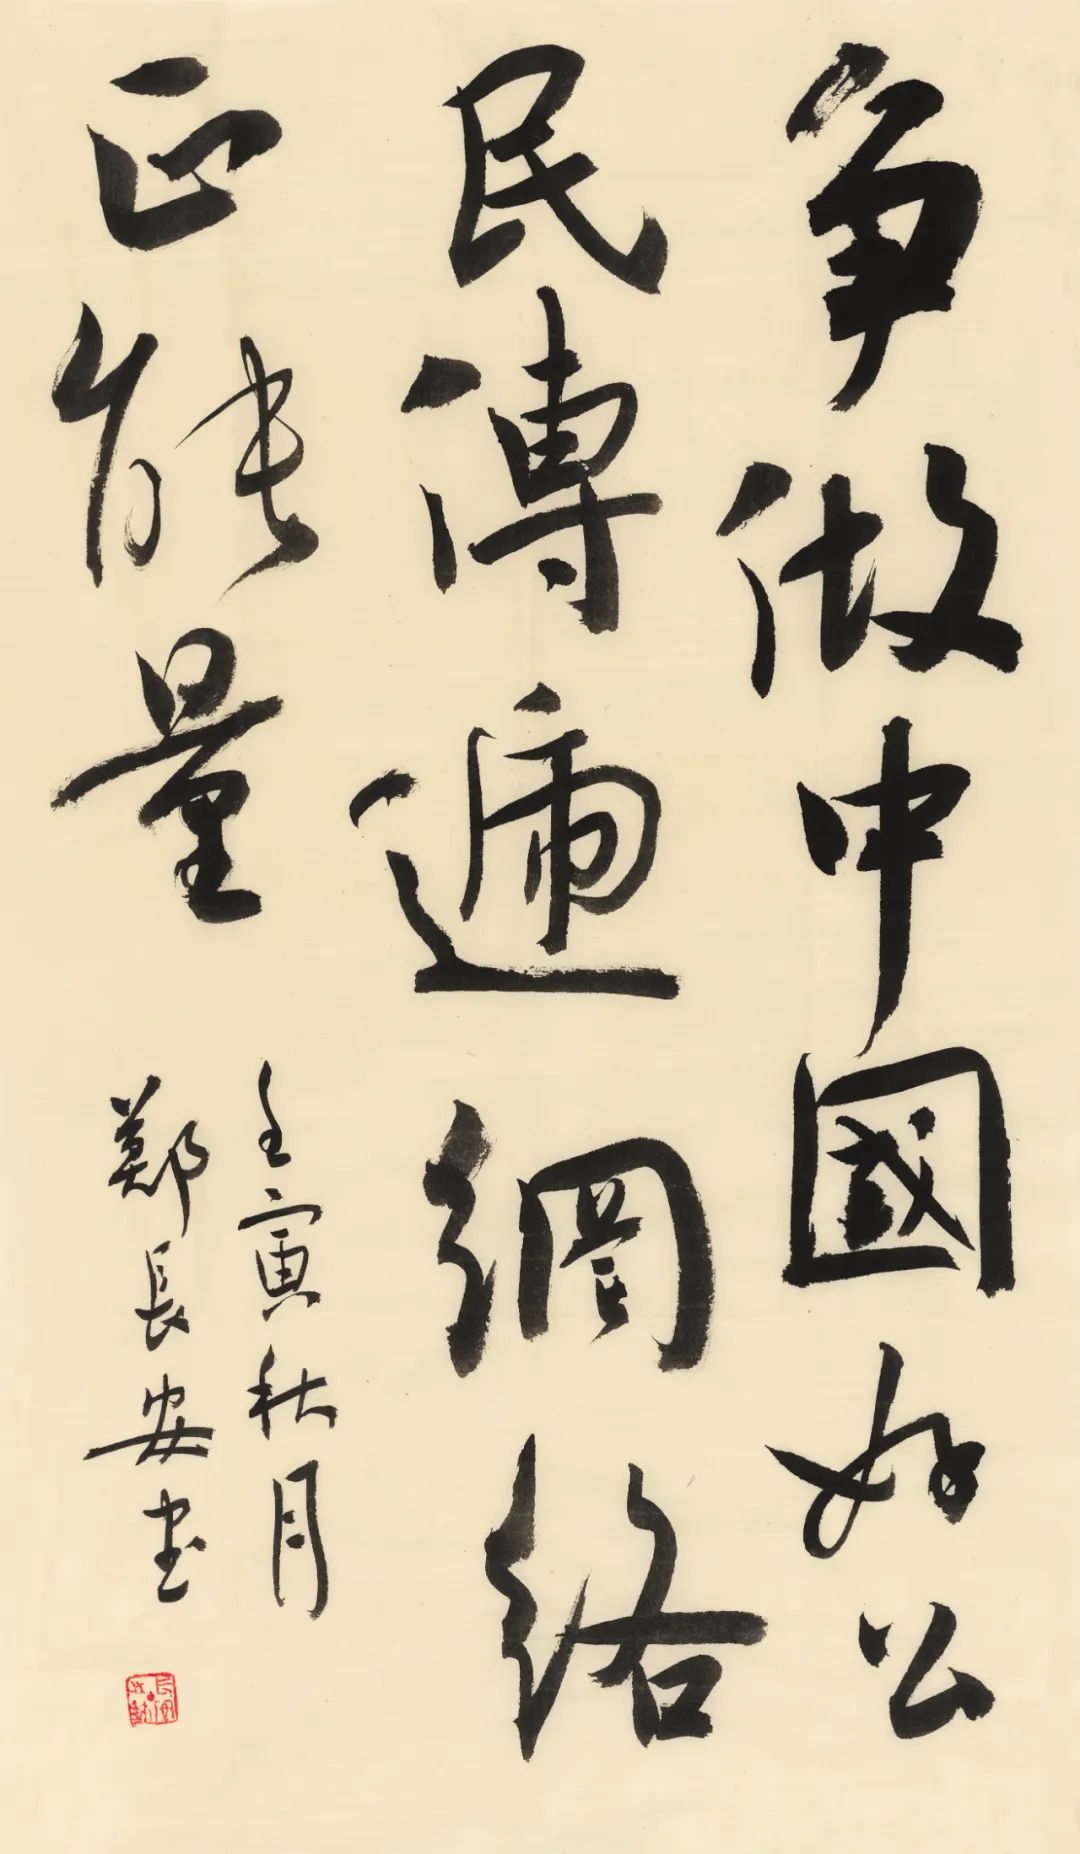 争做中國好公
民傳遞網絡
正能量
壬寅秋月
鄭長安书